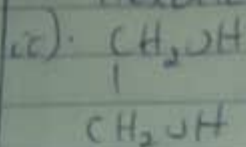 (c). CH₂OH
|
CH₂OH